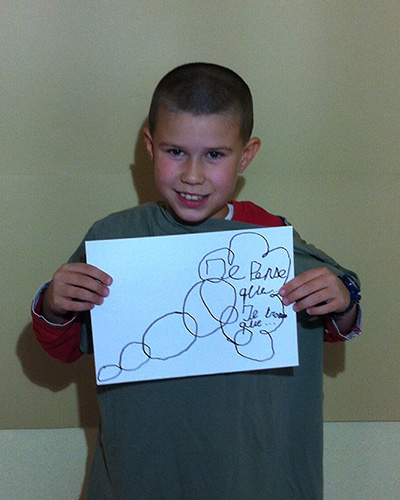 Je Pense
que...
Je
que...